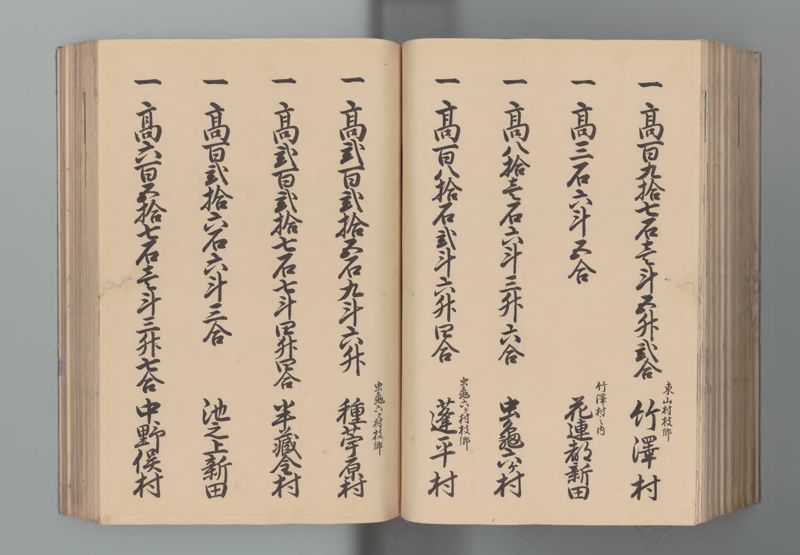 一高百九拾七石壱斗五升弐合 東山村枝郷 竹澤村
一高三石六斗五合 竹澤村之内 花連都新田
一高八拾壱石六斗三升六合 虫亀六ケ村
一高百八拾石弐斗六升四合 虫亀六ケ村枝郷 蓬平村
一高弐百弐拾五石九斗六升 虫亀六ケ村枝郷 種苧原村
一高弐百弐拾七石七斗四升四合 半蔵金村
一高百弐拾六石六斗三合 池之上新田
一高六百五拾七石壱斗三升七合 中野俣村